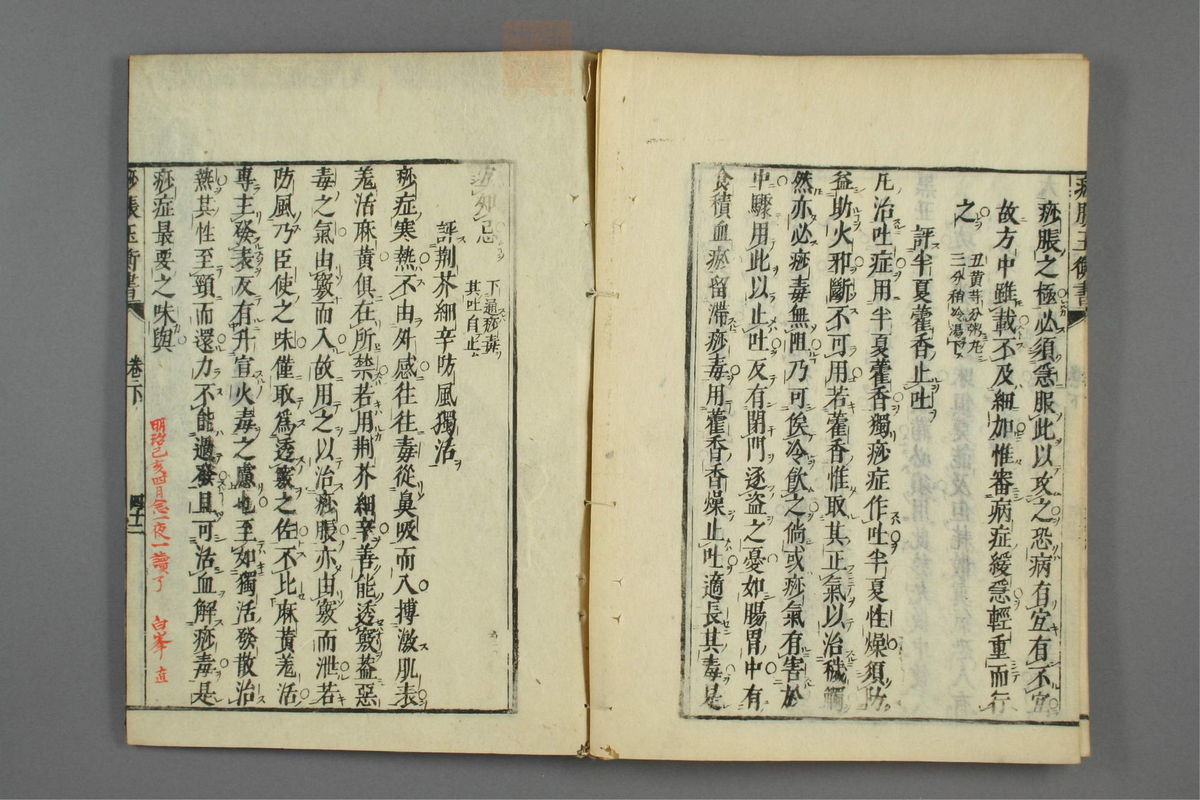 痧脹之極必須急服此以攻之恐病有宜有不宜
故方中雖載不及細加惟審病症緩急輕重而行
之
丑黄芽分粥丸
三分稍冷湯下
評半夏藿香止吐
凡治吐症用半夏藿香獨痧症作吐半夏性燥須防
益助火邪斷不可用若藿香惟取其正氣以治穢觸
然亦必痧毒無阻乃可俟冷飲之倘或痧氣有害於
中驟用此以止吐反有閉門逐盗之憂如腸胃中有
食積血瘀留滯痧毒用藿香香燥止吐適長其毒是
當知忌
下逼痧毒
其吐自止
評荆芥細辛防風獨活
痧症寒熱不由外感往往毒從鼻吸而入搏激肌表
羗活麻黄俱在所禁若用荆芥細辛善能透竅葢惡
毒之氣由竅而入故用之以治痧脹亦由竅而泄若
防風乃臣使之味僅取爲透竅之佐不比麻黄羗活
專主發表反有升宣火毒之慮也至如獨活發散治
熱其性至頸而還力不能過發且可活血解痧毒是
痧症最要之味與
痧脹玉衡書
卷下
四十二
明治己亥四月念一夜一讀了 白峯 直